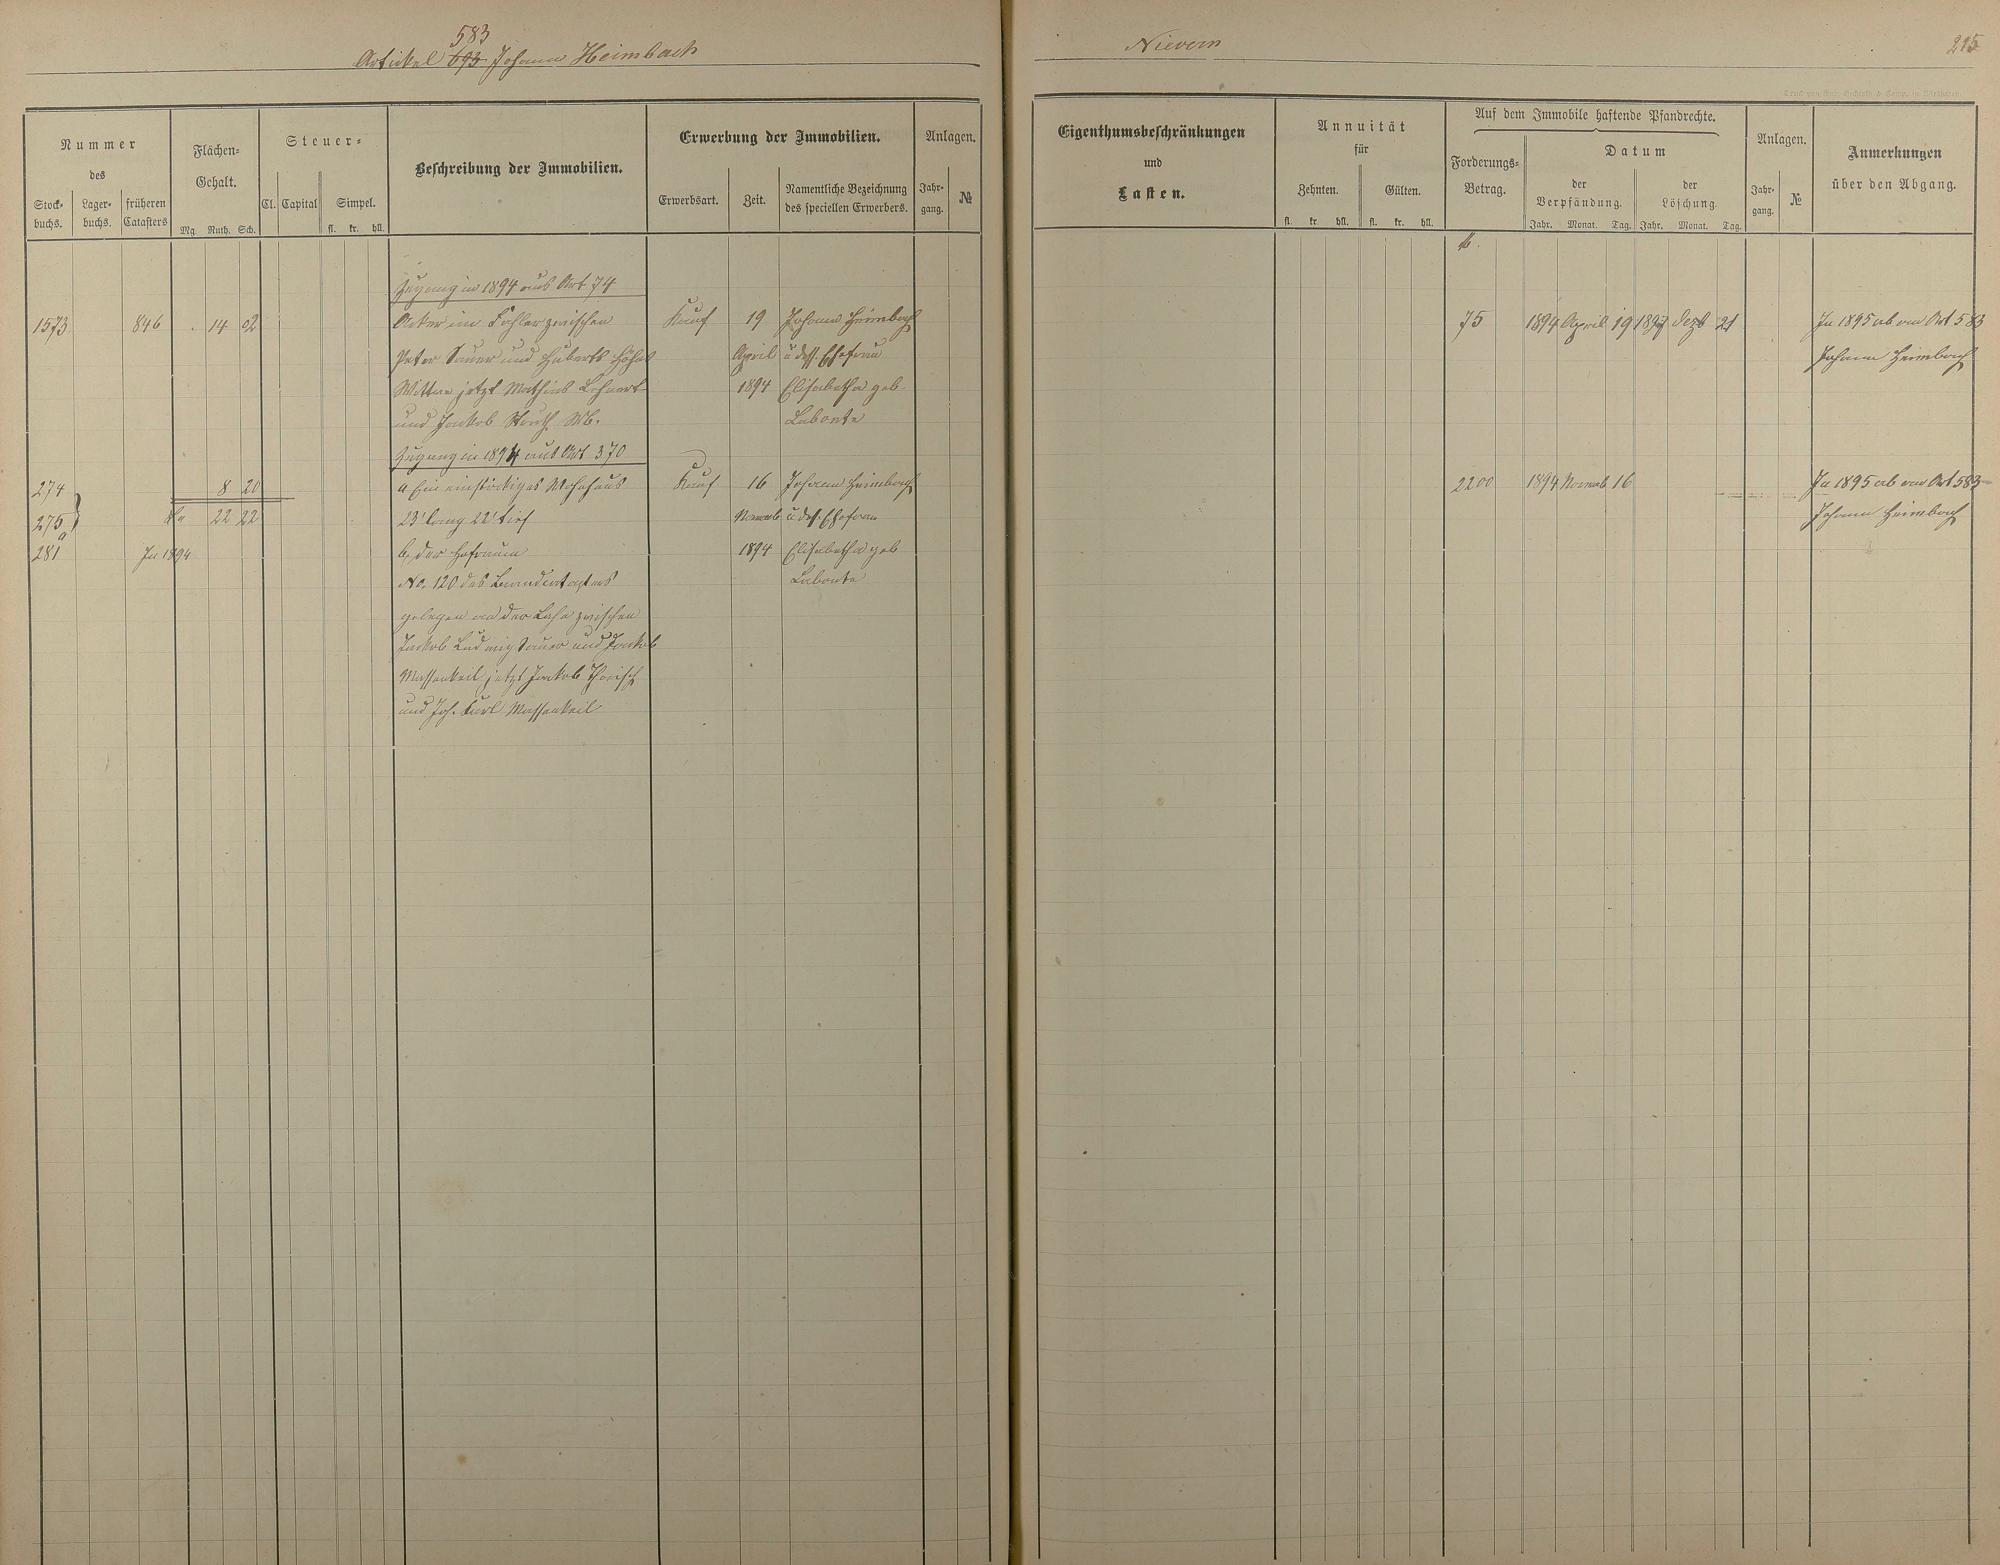 583
Artikel 693 Johann Heimbach
Nievern
215
Nummer
des
Stock-
buchs.
Lager-
buchs.
früheren
Catasters
Flächen-
Gehalt.
Mg. Ruth. Sch.
Steuer-
Cl. Capital Simpel.
fl. kr. hll.
Beschreibung der Immobilien.
Erwerbung der Immobilien.
Erwerbsart. Zeit.
Namentliche Bezeichnung
des speciellen Erwerbers.
Anlagen.
Jahr-
gang.
№
Eigenthumsbeschränkungen
und
Lasten.
Annuität
für
Zehnten. Gülten.
fl. kr. hll. fl. kr. hll.
Auf dem Immobile haftende Pfandrechte.
Forderungs-
Betrag.
Datum
der
Verpfändung.
der
Löschung.
Jahr. Monat. Tag. Jahr. Monat. Tag.
Anlagen.
Jahr-
gang.
№
Anmerkungen
über den Abgang.
Zugang in 1894 aus Art 74
1573 846 14 02 Acker im Fahler zwischen Kauf 19 Johann Heimbach 75 1894 April 19 1897 Dezb 21 In 1895 ab an Art 583
Peter Sauer und Huberts Höhns April u dess. Ehefrau Johann Heimbach
Wittwe jetzt Mathias Lehnert 1894 Elisabetha geb
und Jakob Wb. Labonte
Zugang in 1894 aus Art 370
274 8 20 a Ein einstöckiges Wohnhaus Kauf 16 Johann Heimbach 2200 1894 Novemb 16 In 1895 ab an Art 583
275 22 22 23' lang 22' tief Novemb u dess. Ehefrau Johann Heimbach
a
281 In 1894 b, der Hofraum 1894 Elisabetha geb
No. 120 des Brandcatasters Labonte
gelegen an der Lahn zwischen
Jakob Ludwig Sauer und Jakob
Massenkeil jetzt Jakob
und Joh. Karl Massenkeil